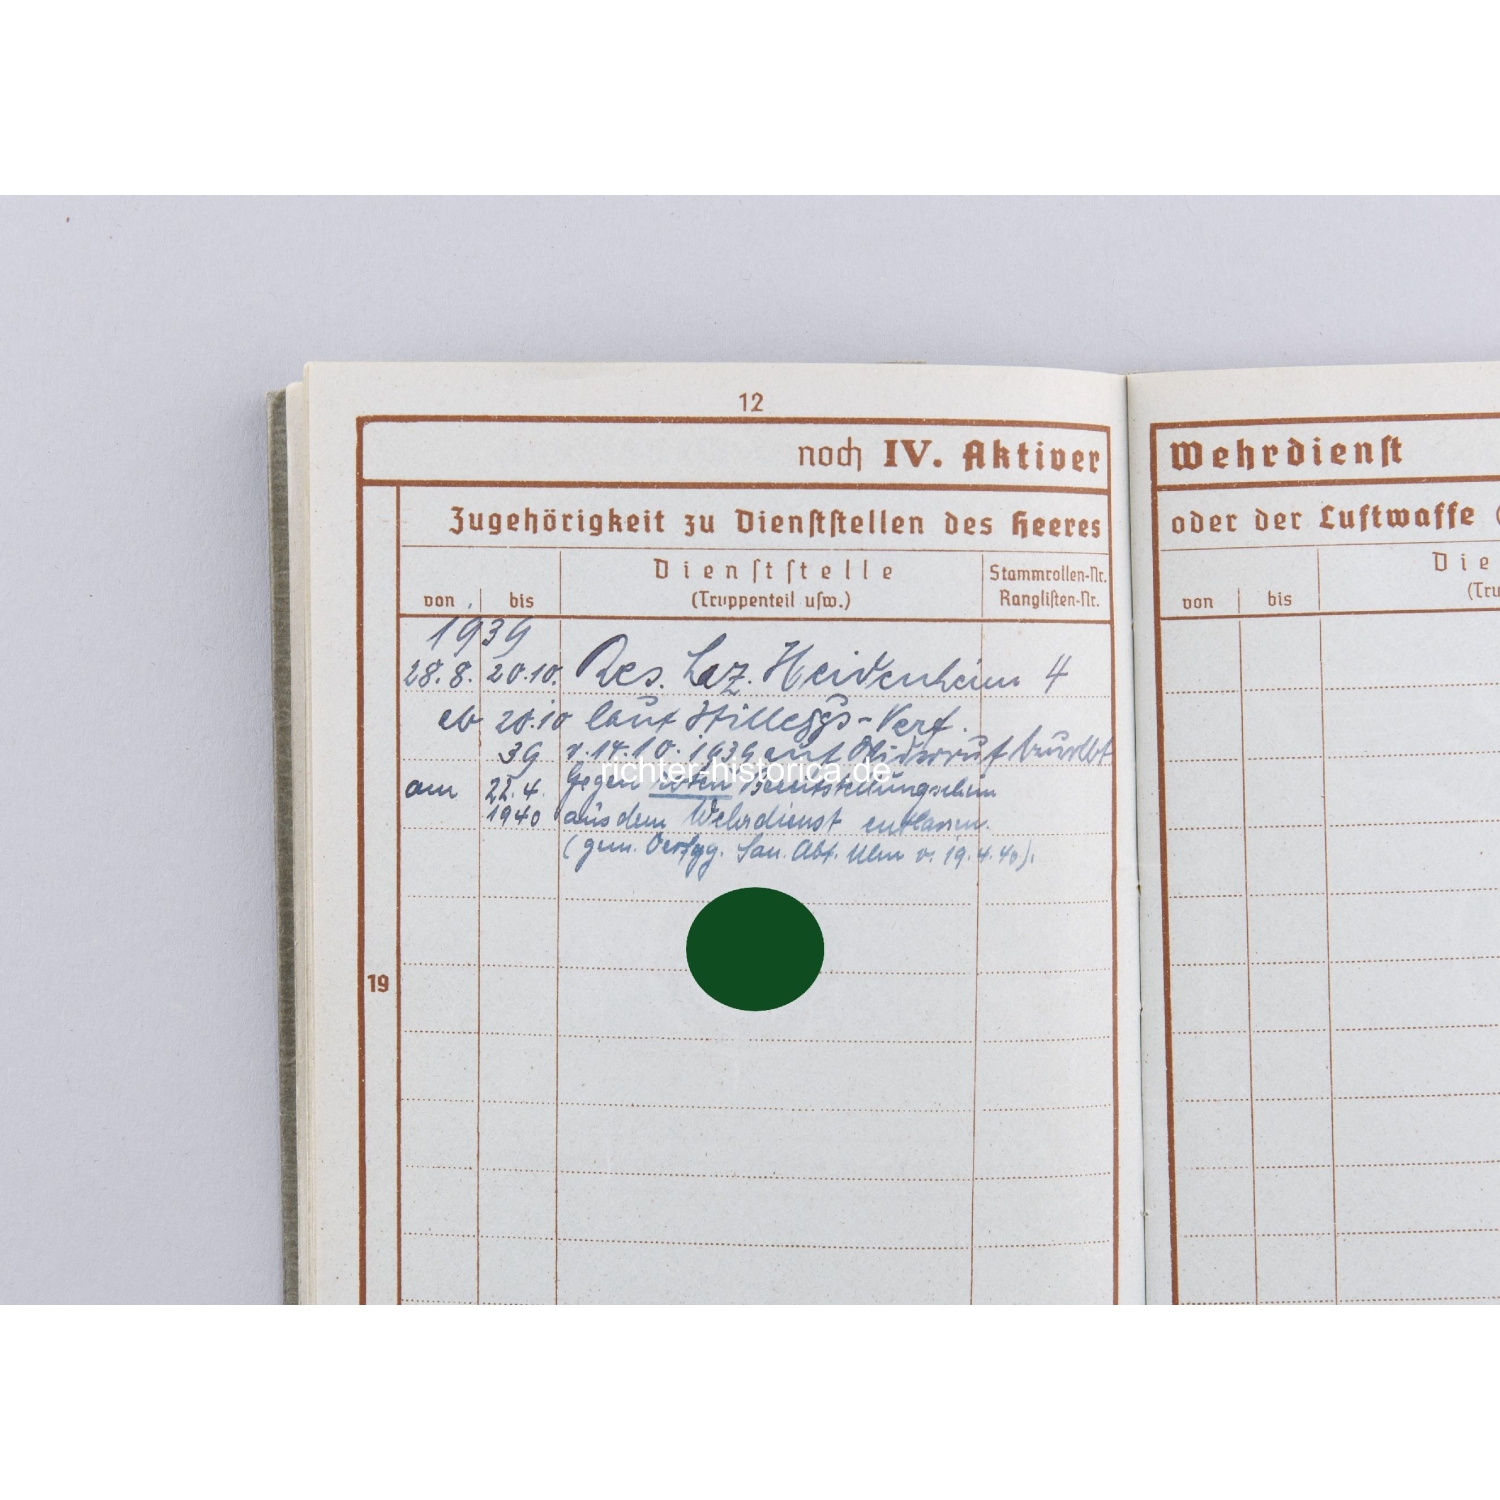 12
noch IV. Aktiver
Wehrdienst
Zugehörigkeit zu Dienststellen des Heeres
oder der Luftwaffe (
von
bis
Dienststelle
(Truppenteil usw.)
Stammrollen-Nr.
Ranglisten-Nr.
von
bis
Die
(Tru
1939
28.8. 20.10. Res. Laz. Heidenheim 4
ab 20.10 laut Stilleggs-Verf.
39 v. 14.10. 1939 auf Widerruf beurlbt
am 22.4. Gegen roten Bereitstellungsschein
1940 aus dem Wehrdienst entlassen.
(gem. Verfgg. San. Abt. Ulm v. 19.4.40).
19
richter-historica.de